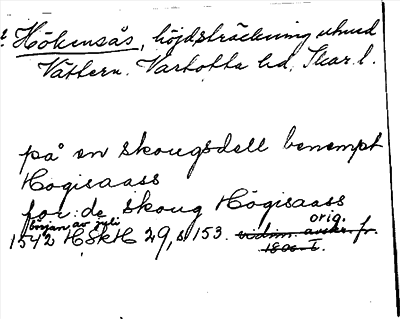 Hökensås, höjdsträckning utmed
Vättern. Vartofta hd, Skar. l.
på en skougsdell benempt
Hogisaass
for:de skoug Högisaass
början av juli
orig.
1542 HSkH 29, s 153. vidim. avskr. fr.
1800-t.